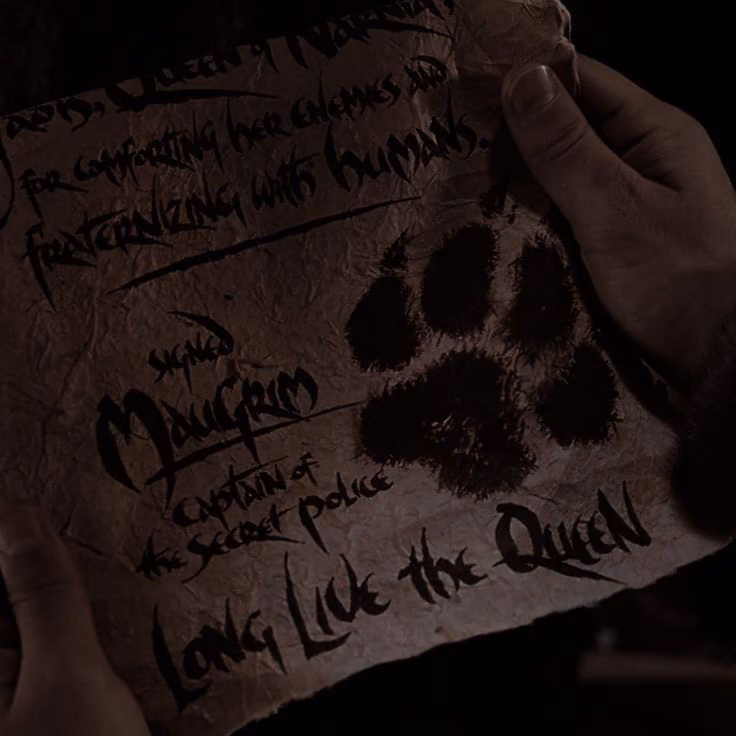 Queen of Narnia,
for comforting her enemies and
fraternizing with humans.
signed
Maugrim
captain of
the Secret Police
Long Live the Queen